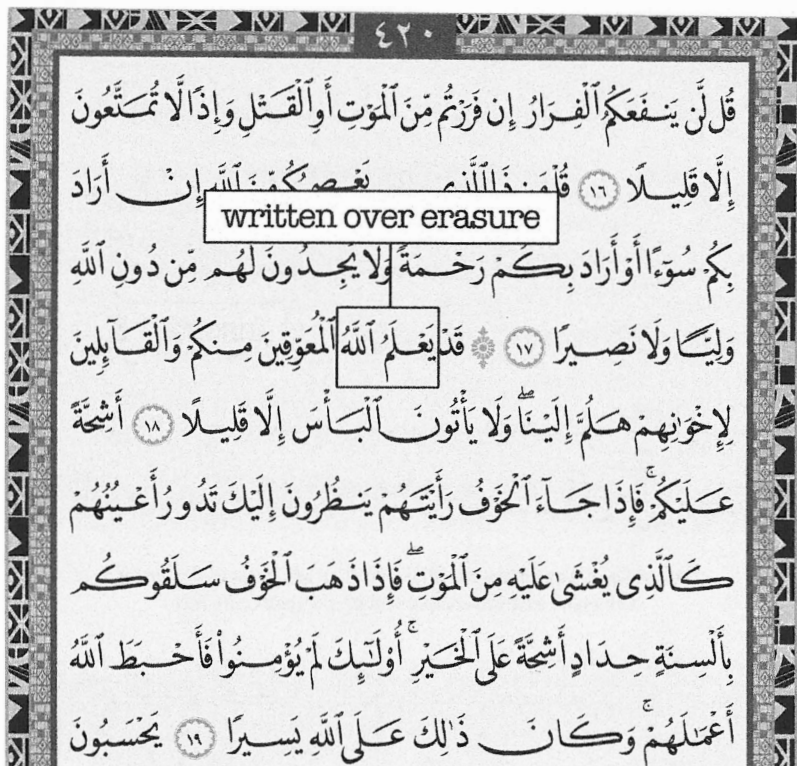 ٤٢٠
قُل لَّن يَنفَعَكُمُ ٱلْفِرَارُ إِن فَرَرْتُم مِّنَ ٱلْمَوْتِ أَوِ ٱلْقَتْلِ وَإِذًا لَّا تُمَتَّعُونَ
إِلَّا قَلِيلًا ١٦ قُلْ مَن ذَا ٱلَّذِى يَعْصِمُكُم مِّنَ ٱللَّهِ إِنْ أَرَادَ
written over erasure
بِكُمْ سُوٓءًا أَوْ أَرَادَ بِكُمْ رَحْمَةً وَلَا يَجِدُونَ لَهُم مِّن دُونِ ٱللَّهِ
وَلِيًّا وَلَا نَصِيرًا ١٧ ۞ قَدْ يَعْلَمُ ٱللَّهُ ٱلْمُعَوِّقِينَ مِنكُمْ وَٱلْقَآئِلِينَ
لِإِخْوَٰنِهِمْ هَلُمَّ إِلَيْنَا ۖ وَلَا يَأْتُونَ ٱلْبَأْسَ إِلَّا قَلِيلًا ١٨ أَشِحَّةً
عَلَيْكُمْ ۖ فَإِذَا جَآءَ ٱلْخَوْفُ رَأَيْتَهُمْ يَنظُرُونَ إِلَيْكَ تَدُورُ أَعْيُنُهُمْ
كَٱلَّذِى يُغْشَىٰ عَلَيْهِ مِنَ ٱلْمَوْتِ ۖ فَإِذَا ذَهَبَ ٱلْخَوْفُ سَلَقُوكُم
بِأَلْسِنَةٍ حِدَادٍ أَشِحَّةً عَلَى ٱلْخَيْرِ ۚ أُو۟لَٰٓئِكَ لَمْ يُؤْمِنُوا۟ فَأَحْبَطَ ٱللَّهُ
أَعْمَٰلَهُمْ ۚ وَكَانَ ذَٰلِكَ عَلَى ٱللَّهِ يَسِيرًا ١٩ يَحْسَبُونَ